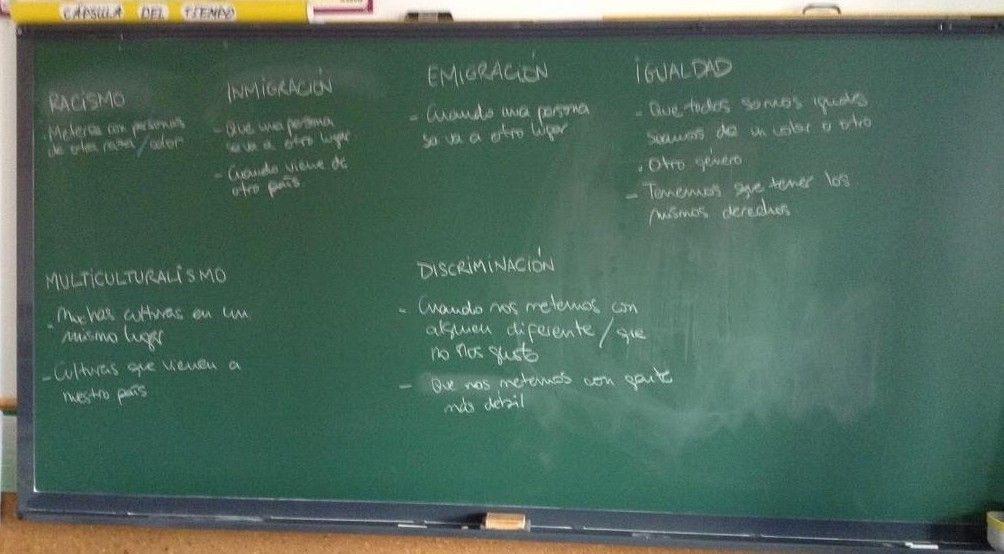 CÁPSULA DEL TIEMPO
RACISMO
- Meterse con personas
de otra raza/color
INMIGRACIÓN
- Que una persona
se va a otro lugar
- Cuando viene de
otro país
EMIGRACIÓN
- Cuando una persona
se va a otro lugar
IGUALDAD
- Que todos somos iguales
seamos de un color o otro
- Otro género
- Tenemos que tener los
mismos derechos.
MULTICULTURALISMO
- Muchas culturas en un
mismo lugar
- Culturas que vienen a
nuestro país
DISCRIMINACIÓN
- Cuando nos metemos con
alguien diferente/que
no nos gusta
- Que nos metemos con gente
más débil